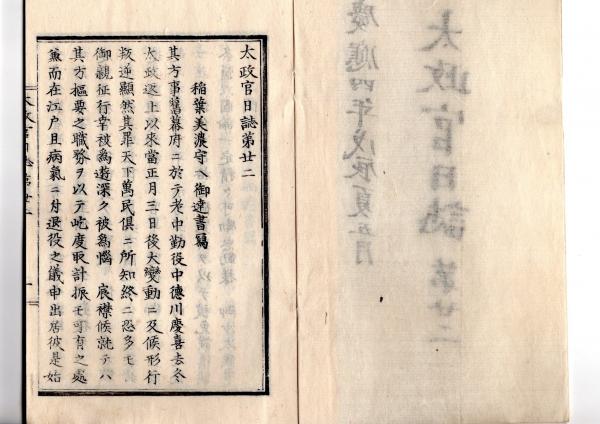 太政官日誌 第廿二
慶應四年戊辰夏五月
太政官日誌第廿二
稲葉美濃守ヘ御達書寫
其方事舊幕府ニ於テ老中勤役中德川慶喜去冬
太政返上以來當正月三日後大變動ニ及候形行
叛逆顯然其罪天下萬民俱ニ所知終ニ恐多モ
御親征行幸被爲遊深ク被爲惱 宸襟候就テハ
其方樞要之職務ヲ以テ屹度取計振モ可有之處
兼而在江戶且病氣ニ付退役之儀申出居彼是始